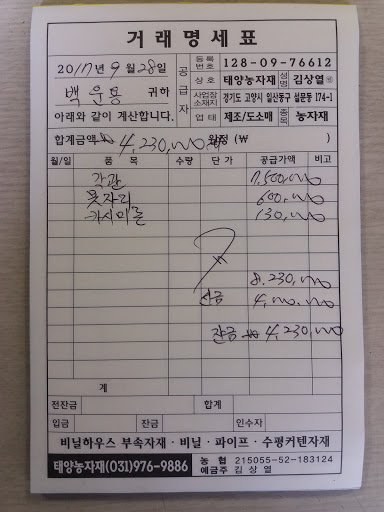 거래명세표
2017년 9월 28일
백운봉 귀하
아래와 같이 계산합니다.
공급자
등록번호 128-09-76612
상호 태양농자재 성명 김상열 ㊞
사업장소재지 경기도 고양시 일산동구 설문동 174-1
업태 제조/도소매 종목 농자재
합계금액 ₩ 4,230,000 원정 (₩ )
월/일 품목 수량 단가 공급가액 비고
각관 7,500,000
못자리 600,000
카시미론 130,000
8,230,000
선금 4,000,000
잔금 ₩ 4,230,000
계
전잔금 합계
입금 잔금 인수자
비닐하우스 부속자재·비닐·파이프·수평커텐자재
태양농자재(031)976-9886
농협 215055-52-183124
예금주 김상열